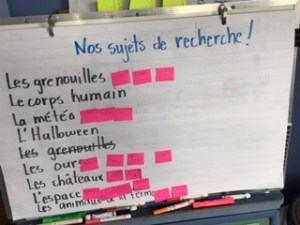 Nos sujets de recherche !
Les grenouilles
Le corps humain
La météo
L'Halloween
Les grenouilles
Les ours
Les châteaux
L'espace
Les animaux de la ferme